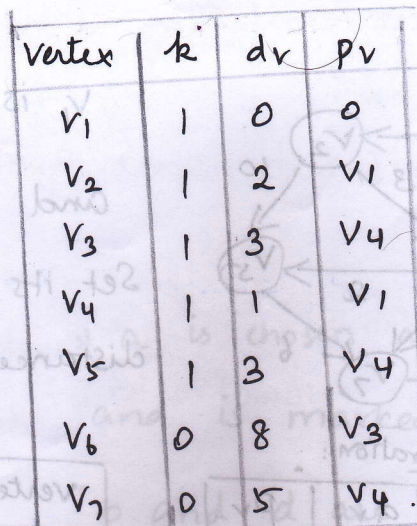 Vertex k dv pv
V1 1 0 0
V2 1 2 V1
V3 1 3 V4
V4 1 1 V1
V5 1 3 V4
V6 0 8 V3
V7 0 5 V4.